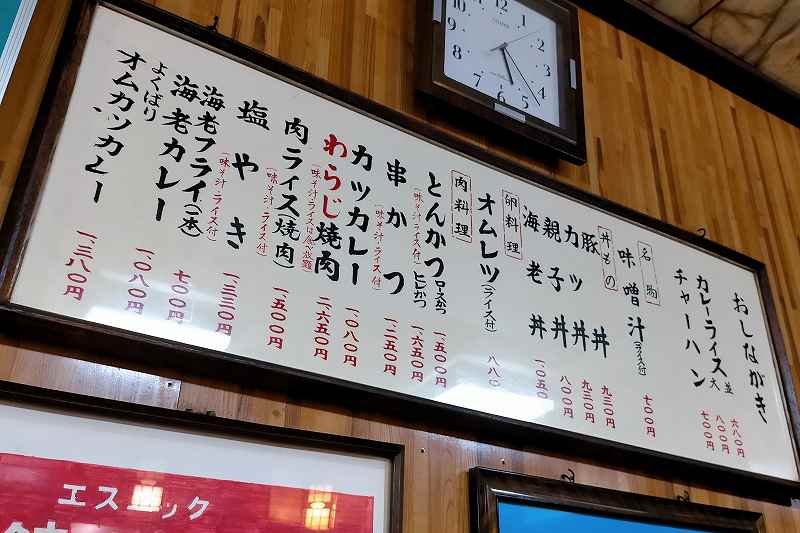 おしながき
カレーライス 並 六八〇円
大 八〇〇円
チャーハン 七〇〇円
名物
味噌汁(ライス付) 七〇〇円
丼もの
豚丼 九三〇円
カツ丼 九三〇円
親子丼 八〇〇円
海老丼 一、〇五〇
卵料理
オムレツ(ライス付) 八八〇
肉料理
とんかつ ロースかつ 一、五〇〇円
ヒレかつ 一、六五〇円
(味そ汁・ライス付)
串かつ 一、二五〇円
(味そ汁・ライス付)
カツカレー 一、〇八〇円
わらじ焼肉 二、六五〇円
(味そ汁・ライスは食べ放題)
肉ライス(焼肉) 一、五〇〇円
(味そ汁・ライス付)
塩やき 一、三三〇円
(味そ汁・ライス付)
海老フライ(二本) 七〇〇円
海老カレー 一、〇八〇円
よくばり
オムカツカレー 一、三八〇円
エスニック